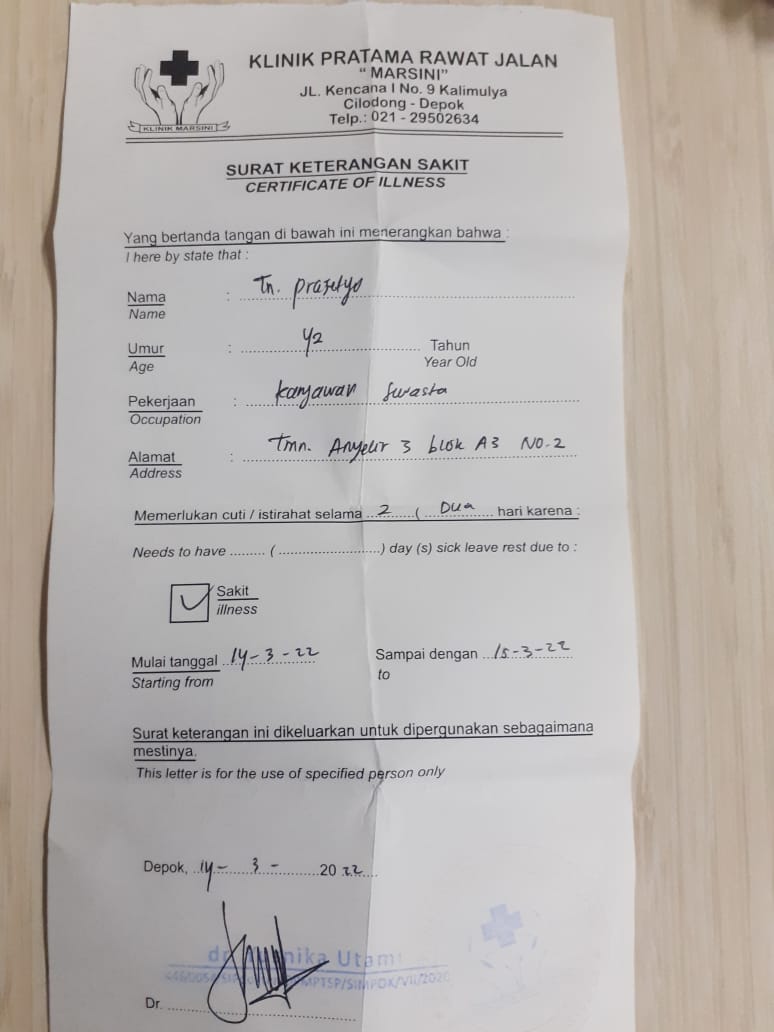 KLINIK PRATAMA RAWAT JALAN
“ MARSINI”
JL. Kencana I No. 9 Kalimulya
Cilodong - Depok
Telp.: 021 - 29502634
KLINIK MARSINI
SURAT KETERANGAN SAKIT
CERTIFICATE OF ILLNESS
Yang bertanda tangan di bawah ini menerangkan bahwa :
I here by state that :
Nama : Tn. Prasetyo
Name
Umur : 42 Tahun
Age Year Old
Pekerjaan : karyawan swasta
Occupation
Alamat : Tmn. Anyelir 3 blok A3 NO. 2
Address
Memerlukan cuti / istirahat selama 2 ( Dua hari karena :
Needs to have ......... ( ........................) day (s) sick leave rest due to :
Sakit
illness
Mulai tanggal 14-3-22 Sampai dengan 15-3-22
Starting from to
Surat keterangan ini dikeluarkan untuk dipergunakan sebagaimana
mestinya.
This letter is for the use of specified person only
Depok, 14 - 3 - 2022
dr. Utam
MPTSP/SIMPOK/VII/2020
Dr.